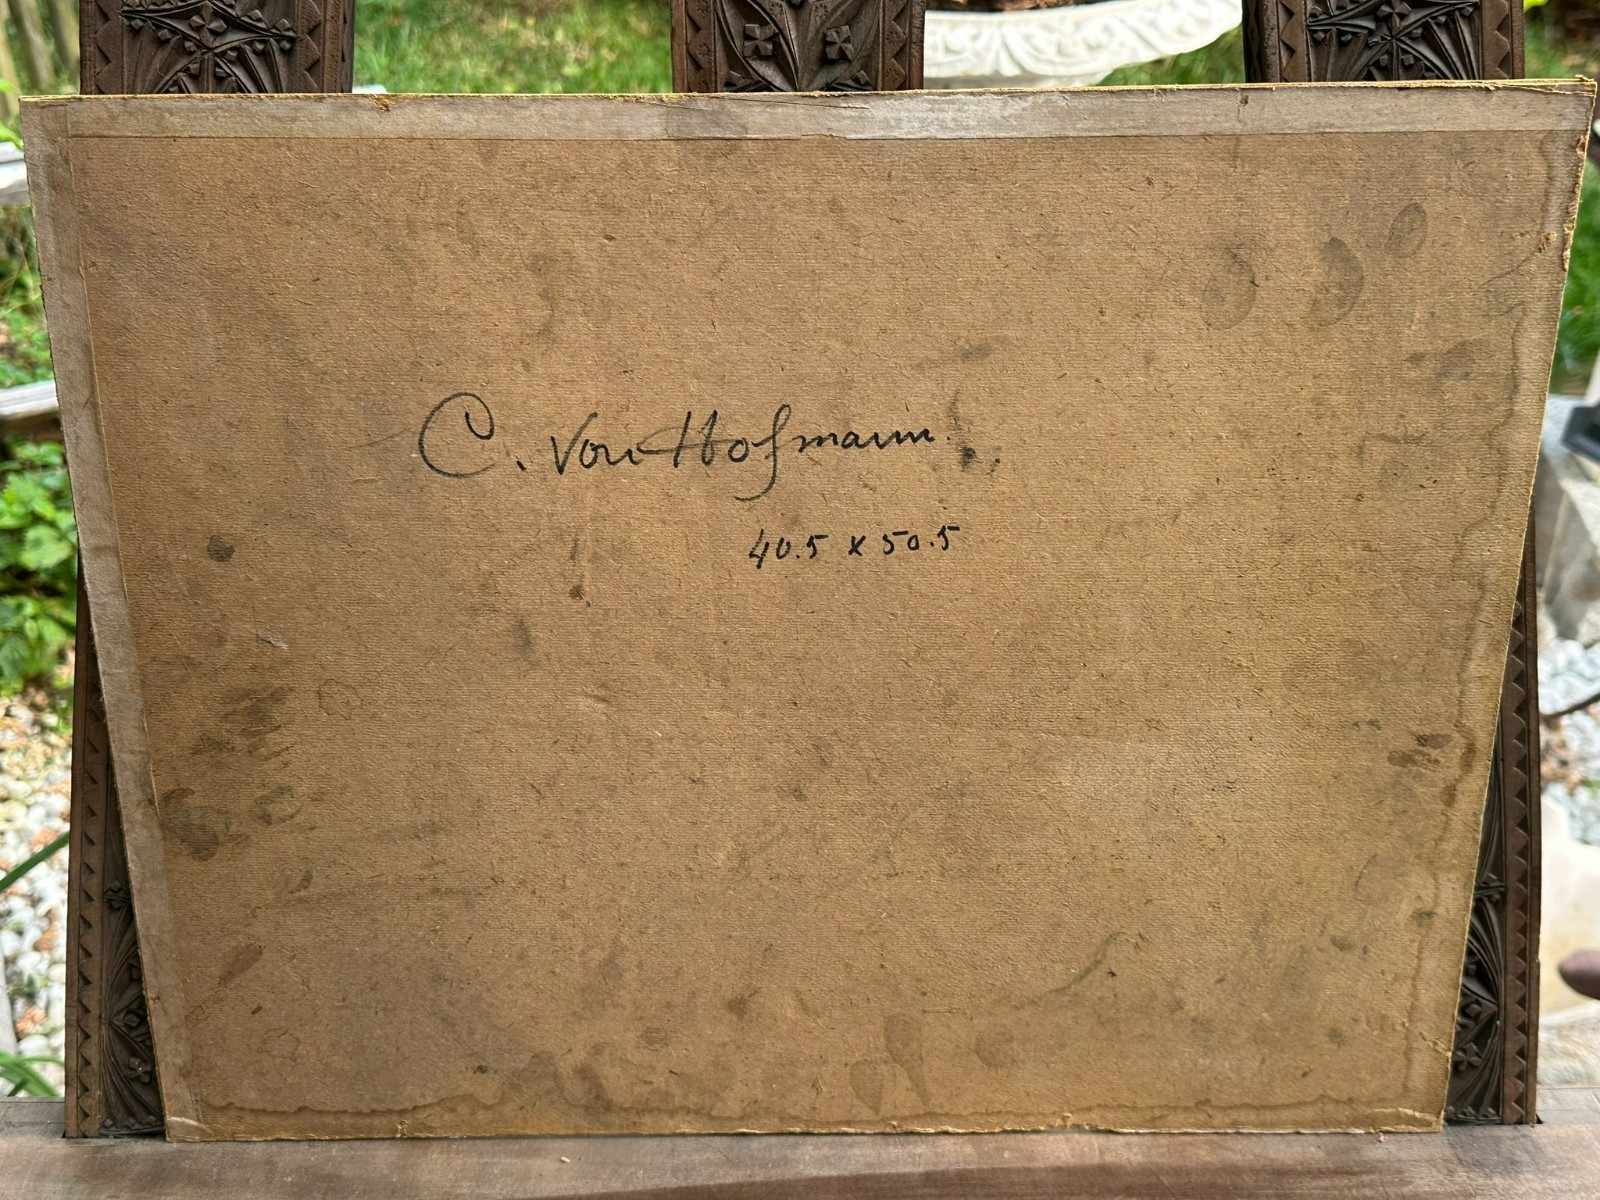 C. von Hofmann
40.5 x 50.5